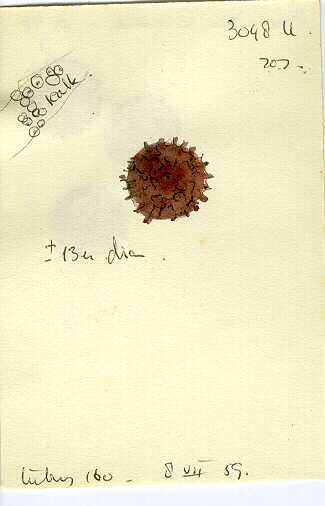 3048 U.
Kalk
± 13 u dia.
tubus 160 - 8 VII 59.